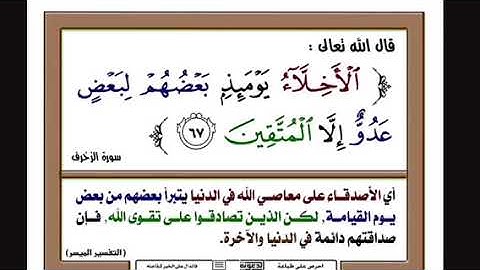 قال الله تعالى :
﴿ ٱلْأَخِلَّآءُ يَوْمَئِذٍۭ بَعْضُهُمْ لِبَعْضٍ
عَدُوٌّ إِلَّا ٱلْمُتَّقِينَ ٦٧ ﴾
سورة الزخرف
أي الأصدقاء على معاصي الله في الدنيا يتبرأ بعضهم من بعض
يوم القيامة, لكن الذين تصادقوا على تقوى الله, فإن
صداقتهم دائمة في الدنيا والآخرة.
(التفسير الميسر)
احرص على طباعة